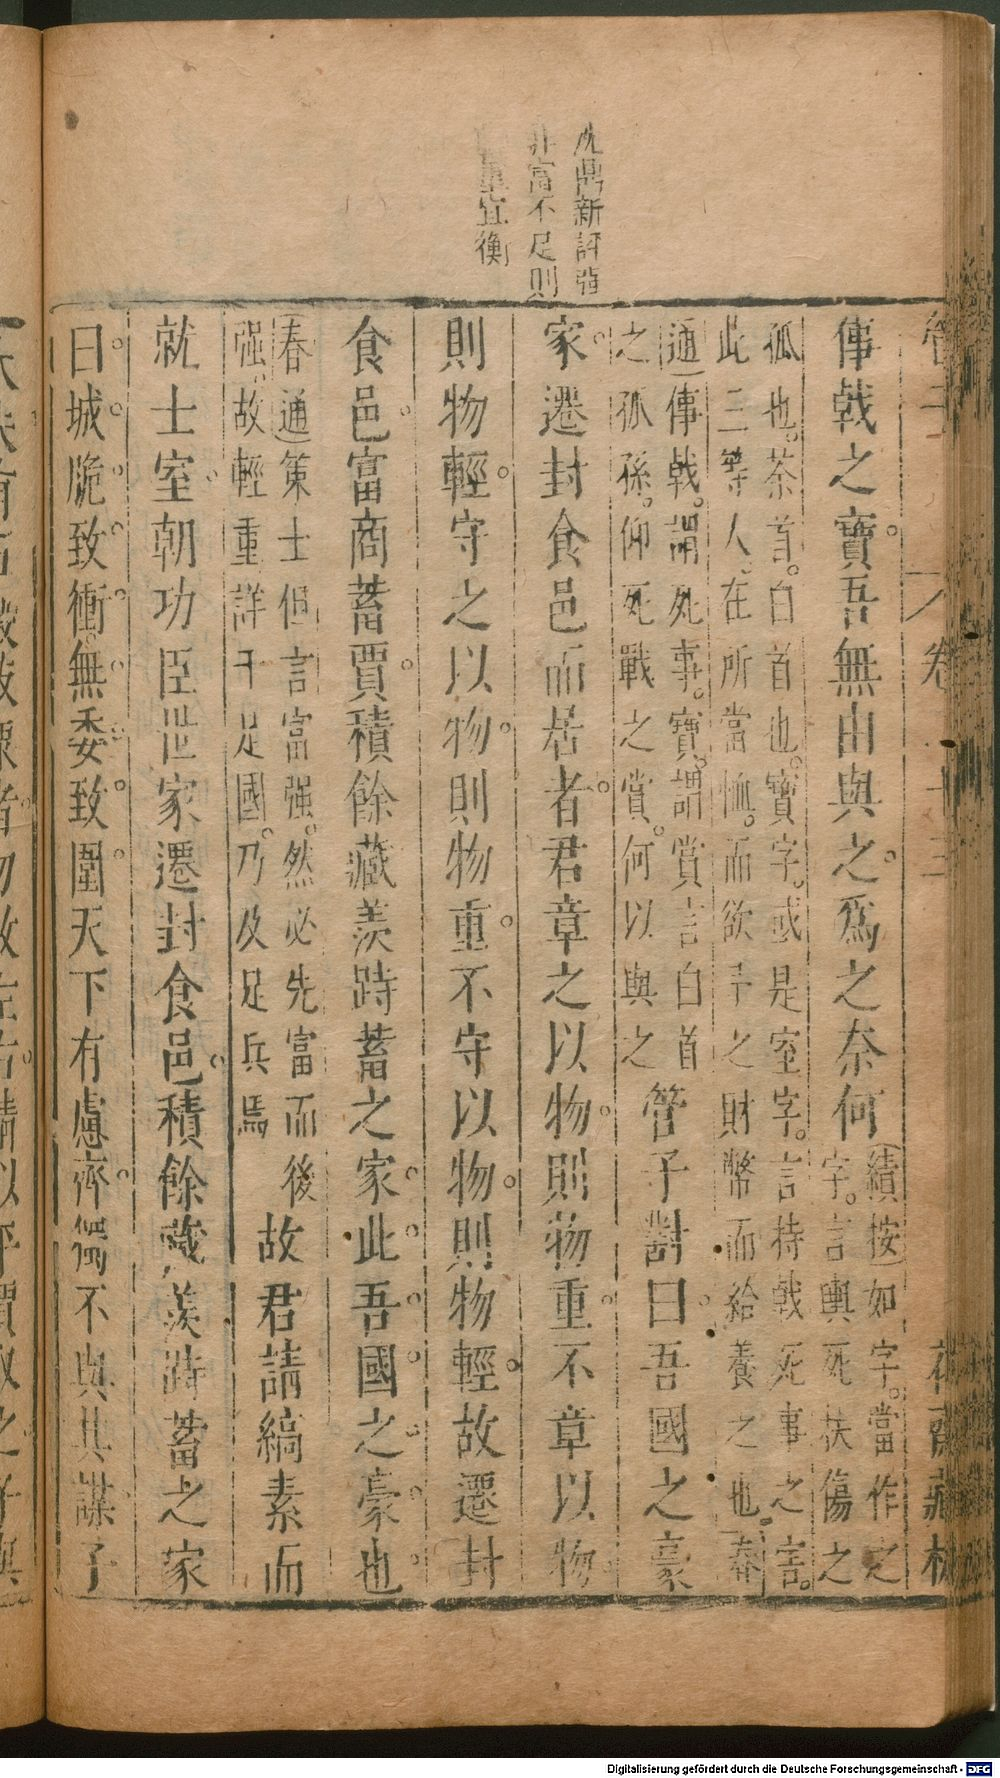 沈鼎新評強
非富不足則
重宜衡
管子
卷二十三
花齋藏板
傳戟之寶。吾無由與之。爲之奈何
續按如字。當作之
字。言輿死扶傷之
孤也。茶首。白首也。寶字。或是室字。言持戟死事之害。
此三等人。在所當恤。而欲予之財幣而給養之也。春
通傳戟。謂死事。寶。謂賞言白首
之孤孫。仰死戰之賞。何以與之
管子對曰。吾國之豪
家。遷封食邑而居者。君章之以物。則物重。不章以物
則物輕。守之以物。則物重。不守以物。則物輕。故遷封
食邑。富商蓄賈。積餘藏羨跱蓄之家。此吾國之豪也。
春通策士但言富强。然必先富而後
强。故輕重詳于足國。乃及足兵焉
故君請縞素而
就士室。朝功臣世家遷封食邑。積餘藏羨跱蓄之家
曰。城脆致衝。無委致圍。天下有慮。齊獨不與其謀。子